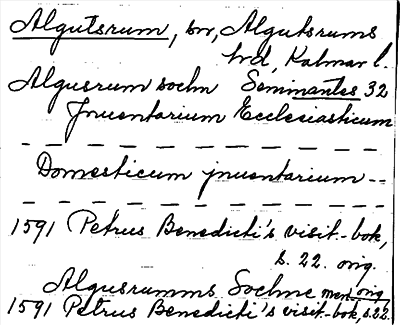 Algutsrum, sn, Algutsrums
hd, Kalmar l.
Algusrum sochn Seminantes 32
Jnuentarium Ecclesiasticum
— — — — — — — — — —
Domesticum jnuentarium --
— — — — — — — — — —
1591 Petrus Benedicti's visit.-bok,
s. 22. orig.
Algusrumms Sochne men orig.
1591 Petrus Benedicti's visit.-bok, s.22.